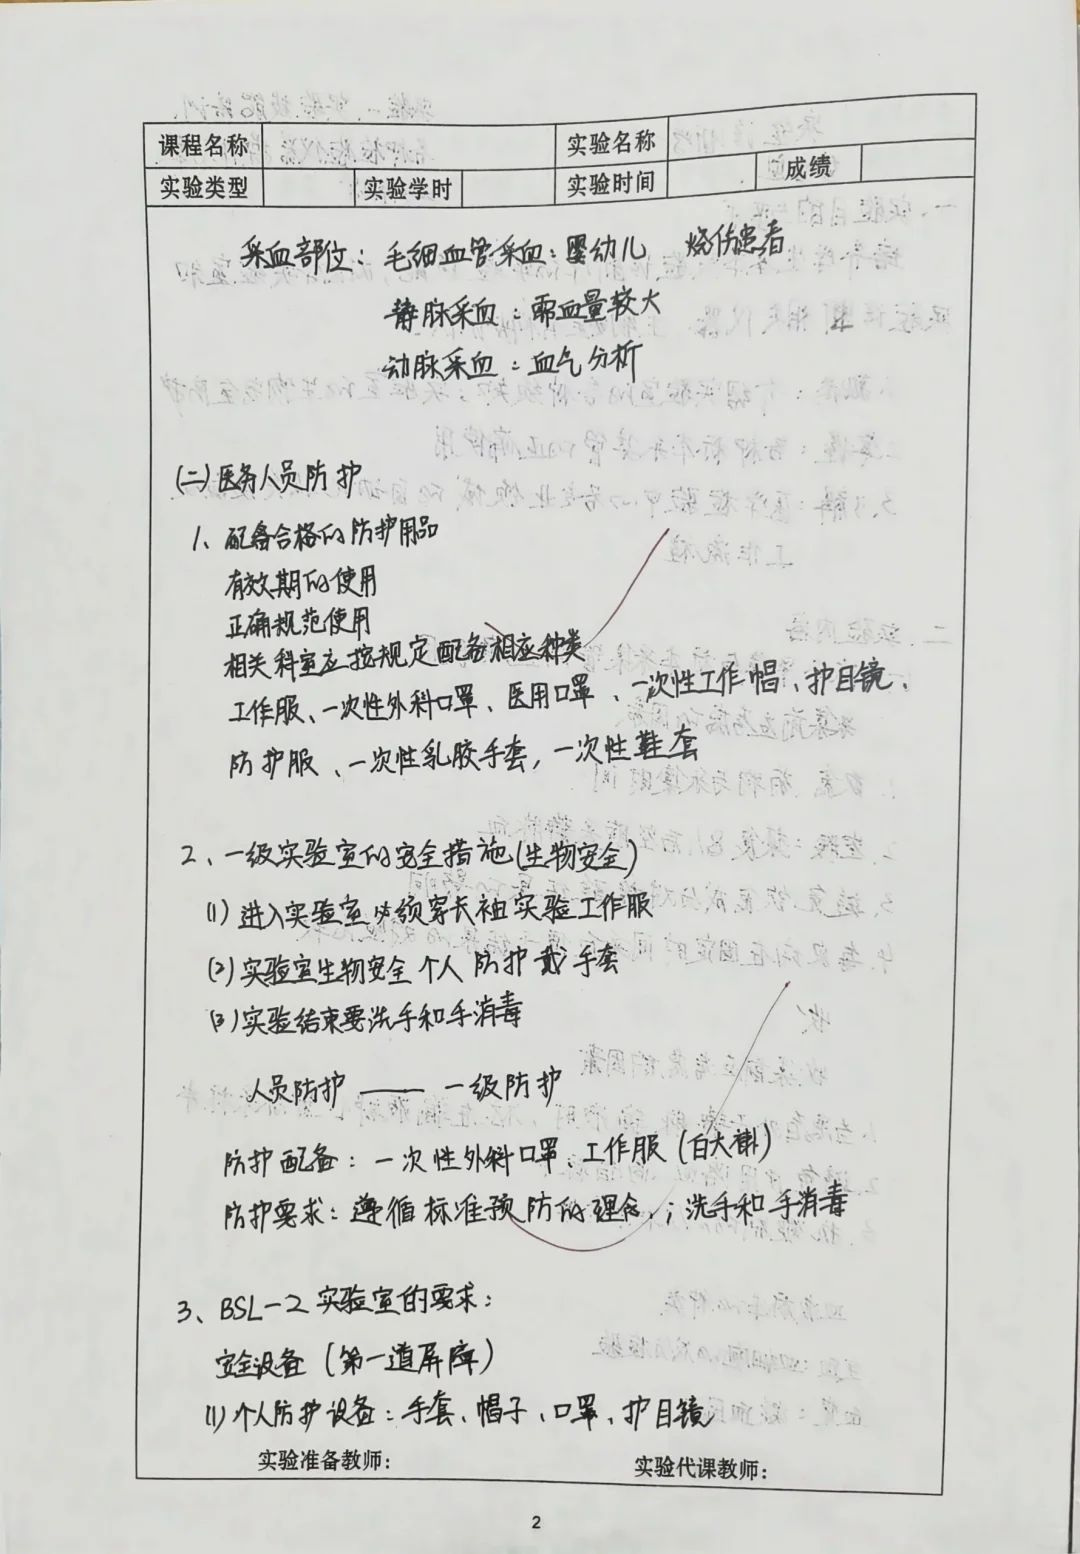 课程名称 实验名称
实验类型 实验学时 实验时间 成绩
采血部位：毛细血管采血：婴幼儿 烧伤患者
静脉采血：需血量较大
动脉采血：血气分析
(二)医务人员防护
1、配备合格的防护用品
有效期的使用
正确规范使用
相关科室应按规定配备相应种类
工作服、一次性外科口罩、医用口罩、一次性工作帽、护目镜、
防护服、一次性乳胶手套，一次性鞋套
2、一级实验室的安全措施(生物安全)
(1)进入实验室必须穿长袖实验工作服
(2)实验室生物安全个人防护戴手套
(3)实验结束要洗手和手消毒
人员防护——一级防护
防护配备：一次性外科口罩、工作服(白大褂)
防护要求：遵循标准预防的理念,；洗手和手消毒
3、BSL-2实验室的要求：
安全设备(第一道屏障)
(1)个人防护设备：手套、帽子、口罩、护目镜
实验准备教师: 实验代课教师:
2